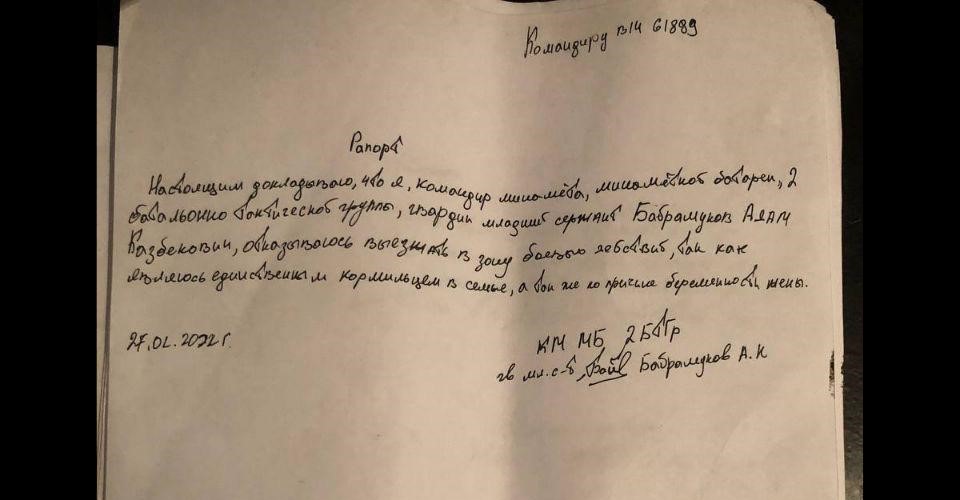 Командиру в/ч 61889
Рапорт
Настоящим докладываю, что я, командир миномёта, миномётной батареи, 2
батальонно тактической группы, гвардии младший сержант Бабрамуков Адам
Казбекович, отказываюсь выезжать в зону боевых действий, так как
являюсь единственным кормильцем в семье, а так же по причине беременности жены.
27.02.2022 г.
КМ МБ 2БТГр
гв мл. с-т Бабрамуков А.К